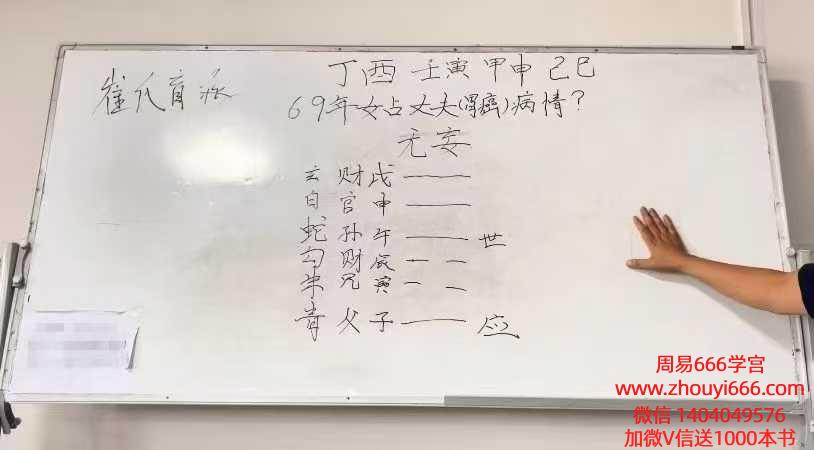 丁酉 壬寅 甲申 己巳
崔氏盲派
69年女占丈夫(胃癌)病情?
无妄
玄 财 戌
白 官 申
蛇 孙 午 世
勾 财 辰
朱 兄 寅
青 父 子 应
周易666学宫
www.zhouyi666.com
微信 1404049576
加微V信送1000本书